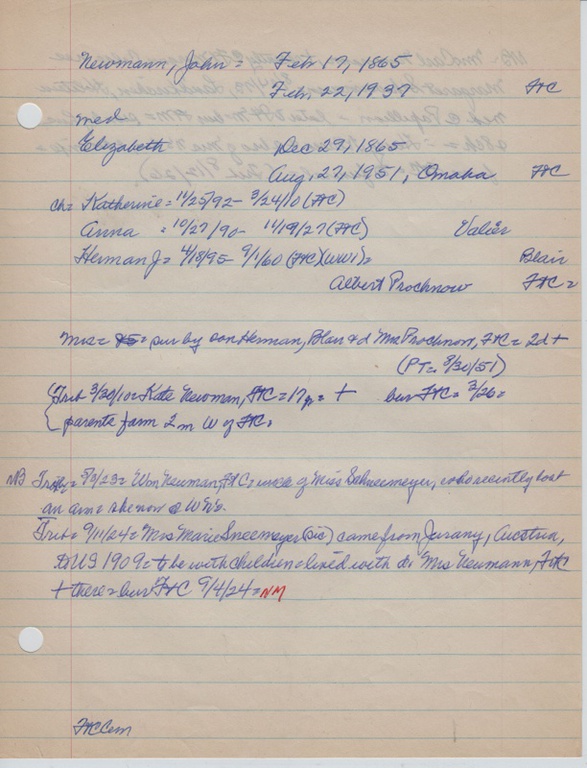 Newmann, John = Feb 17, 1865
Feb. 22, 1937 FtC
med
Elizabeth Dec 29, 1865
Aug, 27, 1951, Omaha FtC
ch = Katherine = 11/25/92 - 3/24/10 (FtC)
Anna = 10/27/90 - 11/19/27 (FtC) Valier
Herman J = 4/18/95 - 9/1/60 (FtC) (WW1) = Blair
Albert Prochnow FtC =
Mrs = sur by son Herman, Blair & d Mrs Prochnow, FtC = 2d +
(PT = 8/30/51)
Trib 3/30/10 = Kate Newman, FtC = 17 = + bur FtC = 3/26 =
parents farm 2 m W of FtC =
NB = 5/3/23 = Wm Neuman, FtC = uncle of Miss Schneemeyer, who recently lost
an arm = she now @ WNs.
Trib = 9/11/24 = Mrs Marie Sneemeyer (sic) came from Austria,
to US 1909 = to be with children = lived with d. Mrs Neumann, FtC
+ there = bur FtC 9/4/24 = NM
FtC Cem